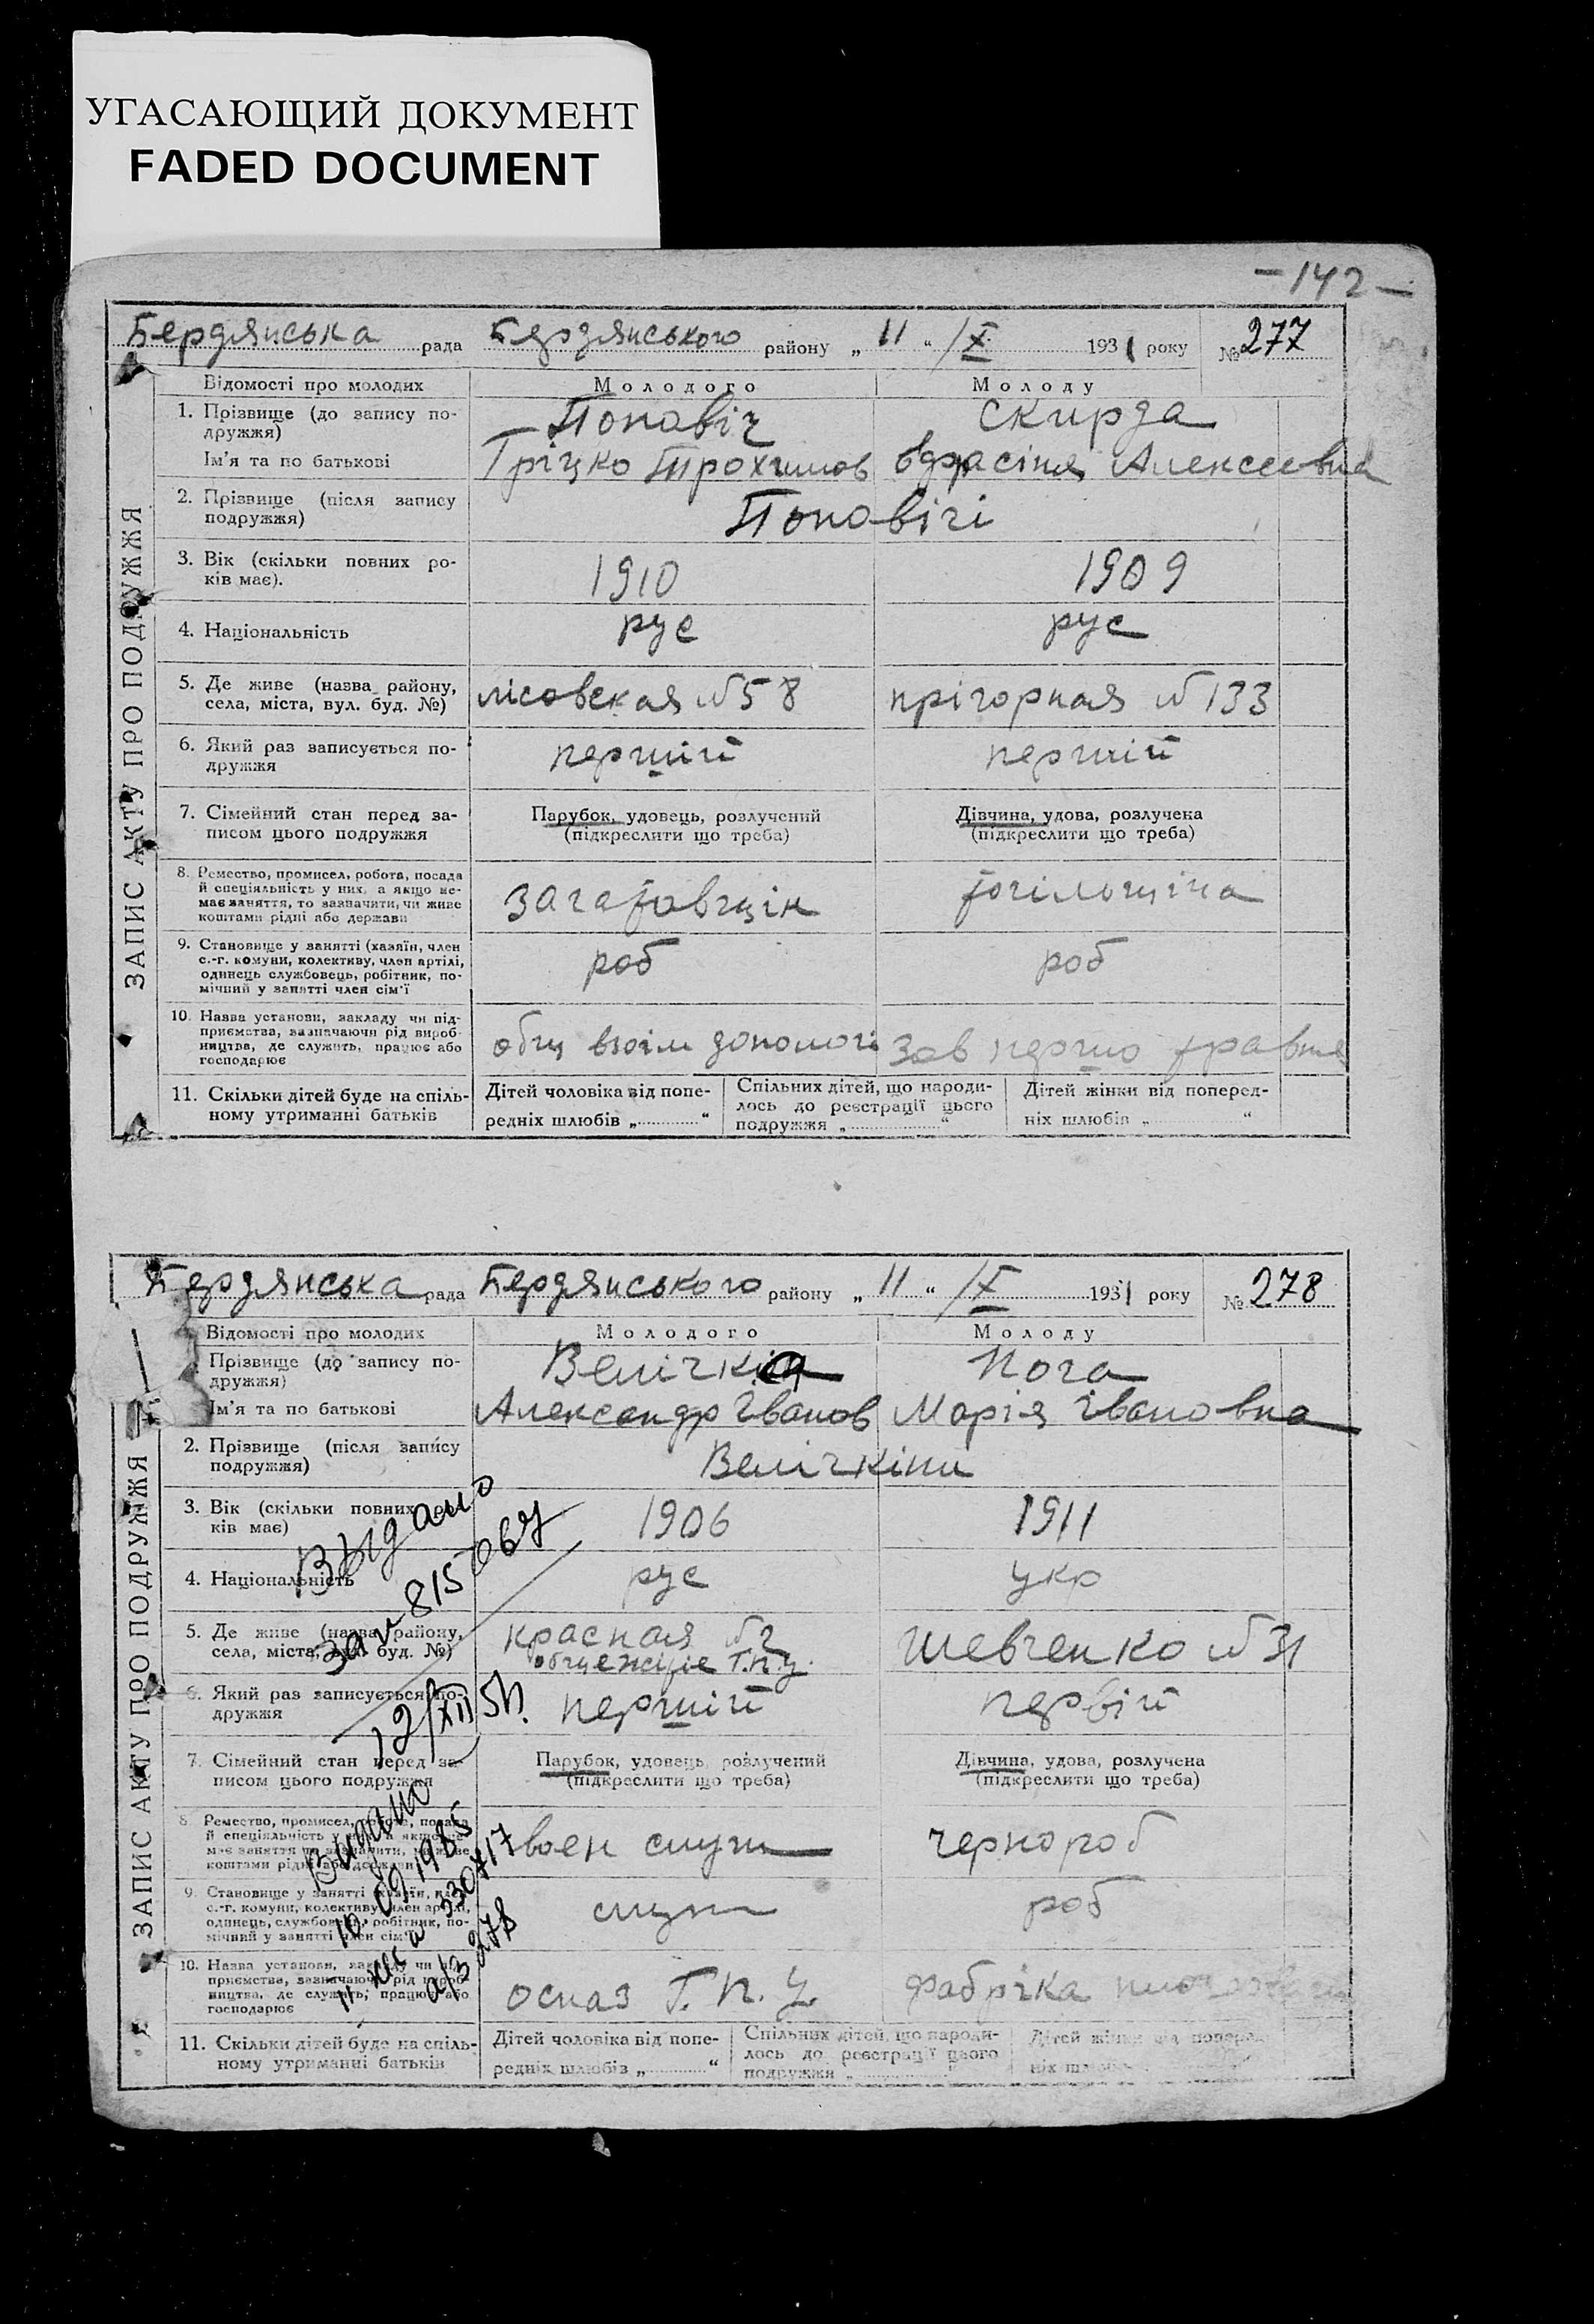 УГАСАЮЩИЙ ДОКУМЕНТ
FADED DOCUMENT
— 142 —
ЗАПИС АКТУ ПРО ПОДРУЖЖЯ
Бердянська рада Бердянського району „ 11 “ /X 1931 року № 277
Відомості про молодих Молодого Молоду
1. Прізвище (до запису по- Поповіч Скирда
дружжя)
Ім'я та по батькові Гріцко Трохимов Алексеевна
2. Прізвище (після запису Поповічі
подружжя)
3. Вік (скільки повних ро- 1910 1909
ків має).
4. Національність рус рус
5. Де живе (назва району, лісовская № 58 прігорная № 133
села, міста, вул. буд. №)
6. Який раз записується по- перший перший
дружжя
7. Сімейний стан перед за- Парубок, удовець, розлучений Дівчина, удова, розлучена
писом цього подружжя (підкреслити що треба) (підкреслити що треба)
8. Ремество, промисел, робота, посада
й спеціяльність у них, а якщо не-
має заняття, то зазначити, чи живе
коштами рідні або держави
9. Становище у занятті (хазяїн, член роб роб
с.-г. комуни, колективу, член артілі,
одинець службовець, робітник, по-
мічний у занятті член сім'ї
10. Назва установи, закладу чи під-
приємства, зазначаючи рід вироб-
ництва, де служить, працює або общ взоім допомогі зав першо травня
господарює
11. Скільки дітей буде на спіль- Дітей чоловіка від попе- Спільних дітей, що народи- Дітей жінки від поперед-
ному утриманні батьків редніх шлюбів „ “ лось до реєстрації цього ніх шлюбів „ “
подружжя „ “
ЗАПИС АКТУ ПРО ПОДРУЖЖЯ
Бердянська рада Бердянського району „ 11 “ /X 1931 року № 278
Відомості про молодих Молодого Молоду
Прізвище (до запису по- Нога
дружжя)
Ім'я та по батькові Александр Іванов Марія Івановна
2. Прізвище (після запису Велічкіни
подружжя)
3. Вік (скільки повних ро- 1906 1911
ків має)
4. Національність рус укр
5. Де живе (назва району, красная № 2 Шевченко № 31
села, міста, вул. буд. №) общежітіе Г.П.У.
6. Який раз записується по- перший первій
дружжя
7. Сімейний стан перед за- Парубок, удовець, розлучений Дівчина, удова, розлучена
писом цього подружжя (підкреслити що треба) (підкреслити що треба)
8. Ремество, промисел, робота, посада воен служ чернороб
й спеціяльність у них, а якщо не-
має заняття то зазначити, чи живе
коштами рідні або держави
9. Становище у занятті (хазяїн, член служ роб
с.-г. комуни, колективу, член артілі,
одинець, службовець, робітник, по-
мічний у занятті член сім'ї
10. Назва установи, закладу чи під-
приємства, зазначаючи рід вироб-
ництва, де служить, працює або оспаз Г.П.У. фабріка
господарює
11. Скільки дітей буде на спіль- Дітей чоловіка від попе- Спільних дітей, що народи- Дітей жінки від поперед-
ному утриманні батьків редніх шлюбів „ “ лось до реєстрації цього ніх шлюбів
подружжя „ “
Выдано
12/XII 51
Видано
10.09.1985
а/з 278